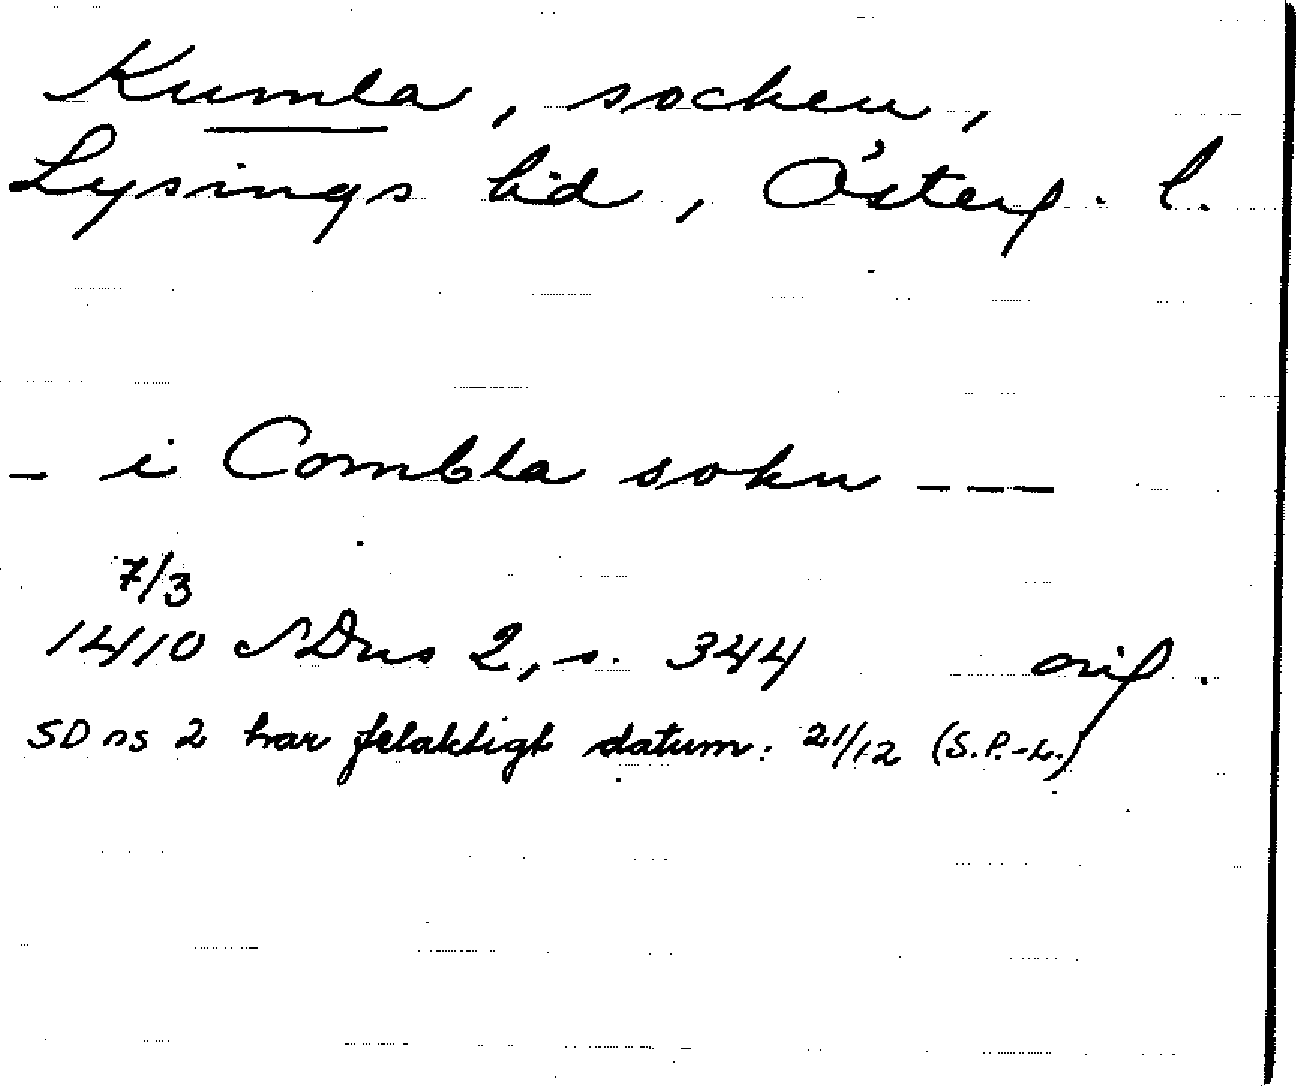 Kumla, socken,
Lysings hd, Österg. l.
- i Combla sokn ---
7/3
1410 SDns 2, s. 344 orig.
SD ns 2 har felaktigt datum: 21/12 (S.P.-L.)